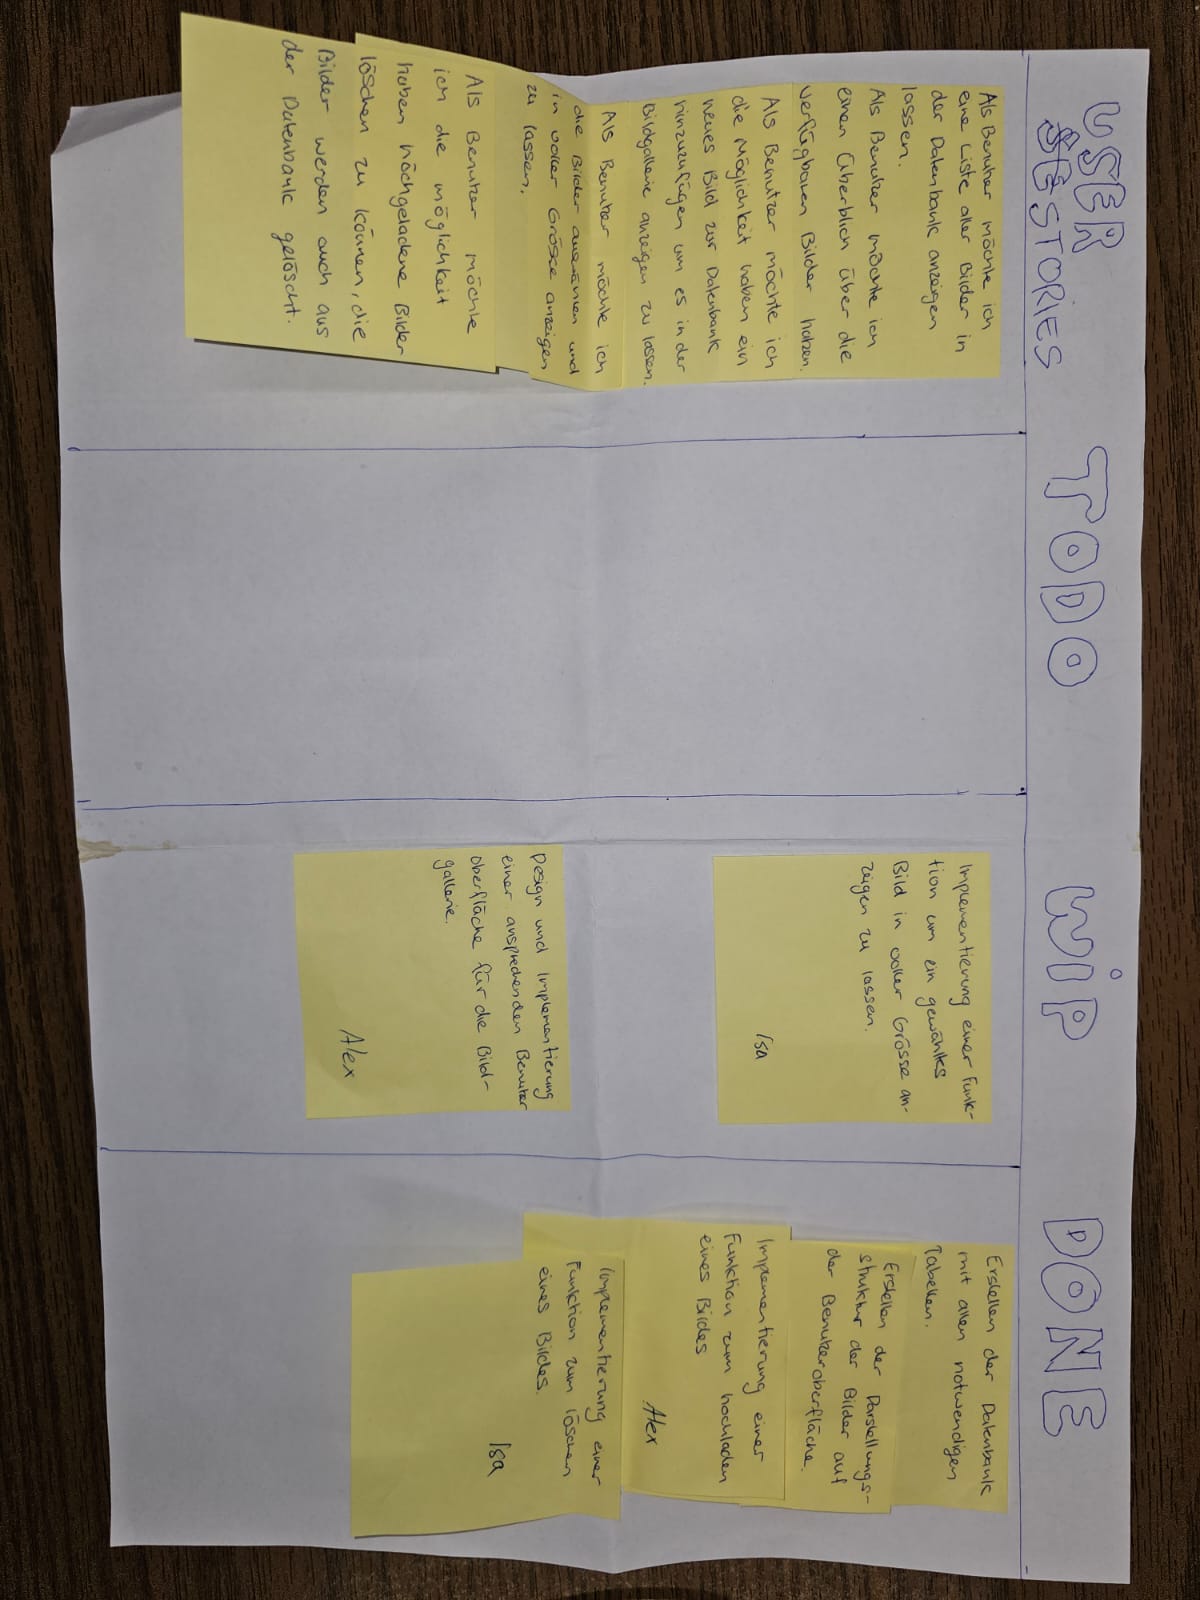 USER
STORIES
TODO
WIP
DONE
Als Benutzer möchte ich
eine Liste aller Bilder in
der Datenbank anzeigen
lassen.
Als Benutzer möchte ich
einen Überblich über die
verfügbaren Bilder haben.
Als Benutzer möchte ich
die Möglichkeit haben ein
neues Bild zur Datenbank
hinzuzufügen um es in der
Bildgallerie anzeigen zu lassen.
Als Benutzer möchte ich
die Bilder auswählen und
in voller Grösse anzeigen
zu lassen.
Als Benutzer möchte
ich die möglichkeit
haben höchgeladene Bilder
löschen zu können, die
Bilder werden auch aus
der Datenbank gelöscht.
Implementierung einer Funk-
tion um ein gewähltes
Bild in voller Grösse an-
zeigen zu lassen.
Isa
Design und Implementierung
einer ansprechenden Benutzer
oberfläche für die Bild-
gallerie.
Alex
Erstellen der Datenbank
mit allen notwendigen
Tabellen.
Erstellen der Darstellungs-
struktur der Bilder auf
der Benutzeroberfläche.
Implementierung einer
Funktion zum hochladen
eines Bildes
Alex
Implementierung einer
Funktion zum löschen
eines Bildes.
Isa